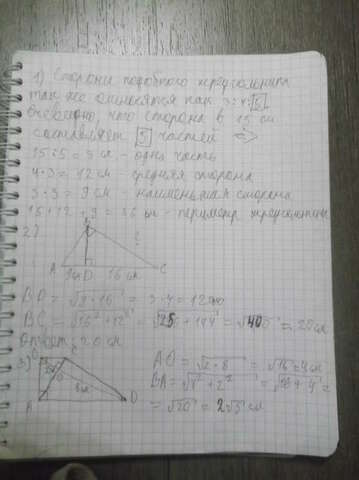 1) Стороны подобного треугольника
так же относятся как 3:4:5
очевидно, что сторона в 15 см
составляет 5 частей
15:5 = 3 см - одна часть
4·3 = 12 см - средняя сторона
3·3 = 9 см - наименьшая сторона
15+12+9 = 36 см - периметр треугольника
2) B
?
A 9см D 16 см C
BD = √9·16 = 3·4 = 12
BC = √16²+12² = √400 = 20 см
Ответ: 20 см
3) B C
O
8см
A D
AO = √2·8 = √16 = 4 см
BA = √4²+2² =
= √20 = 2√5 см